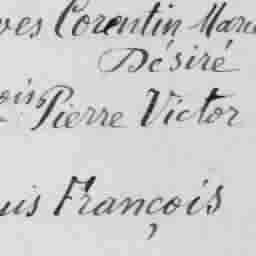 ves Corentin Marie
Désiré
ois Pierre Victor
uis François